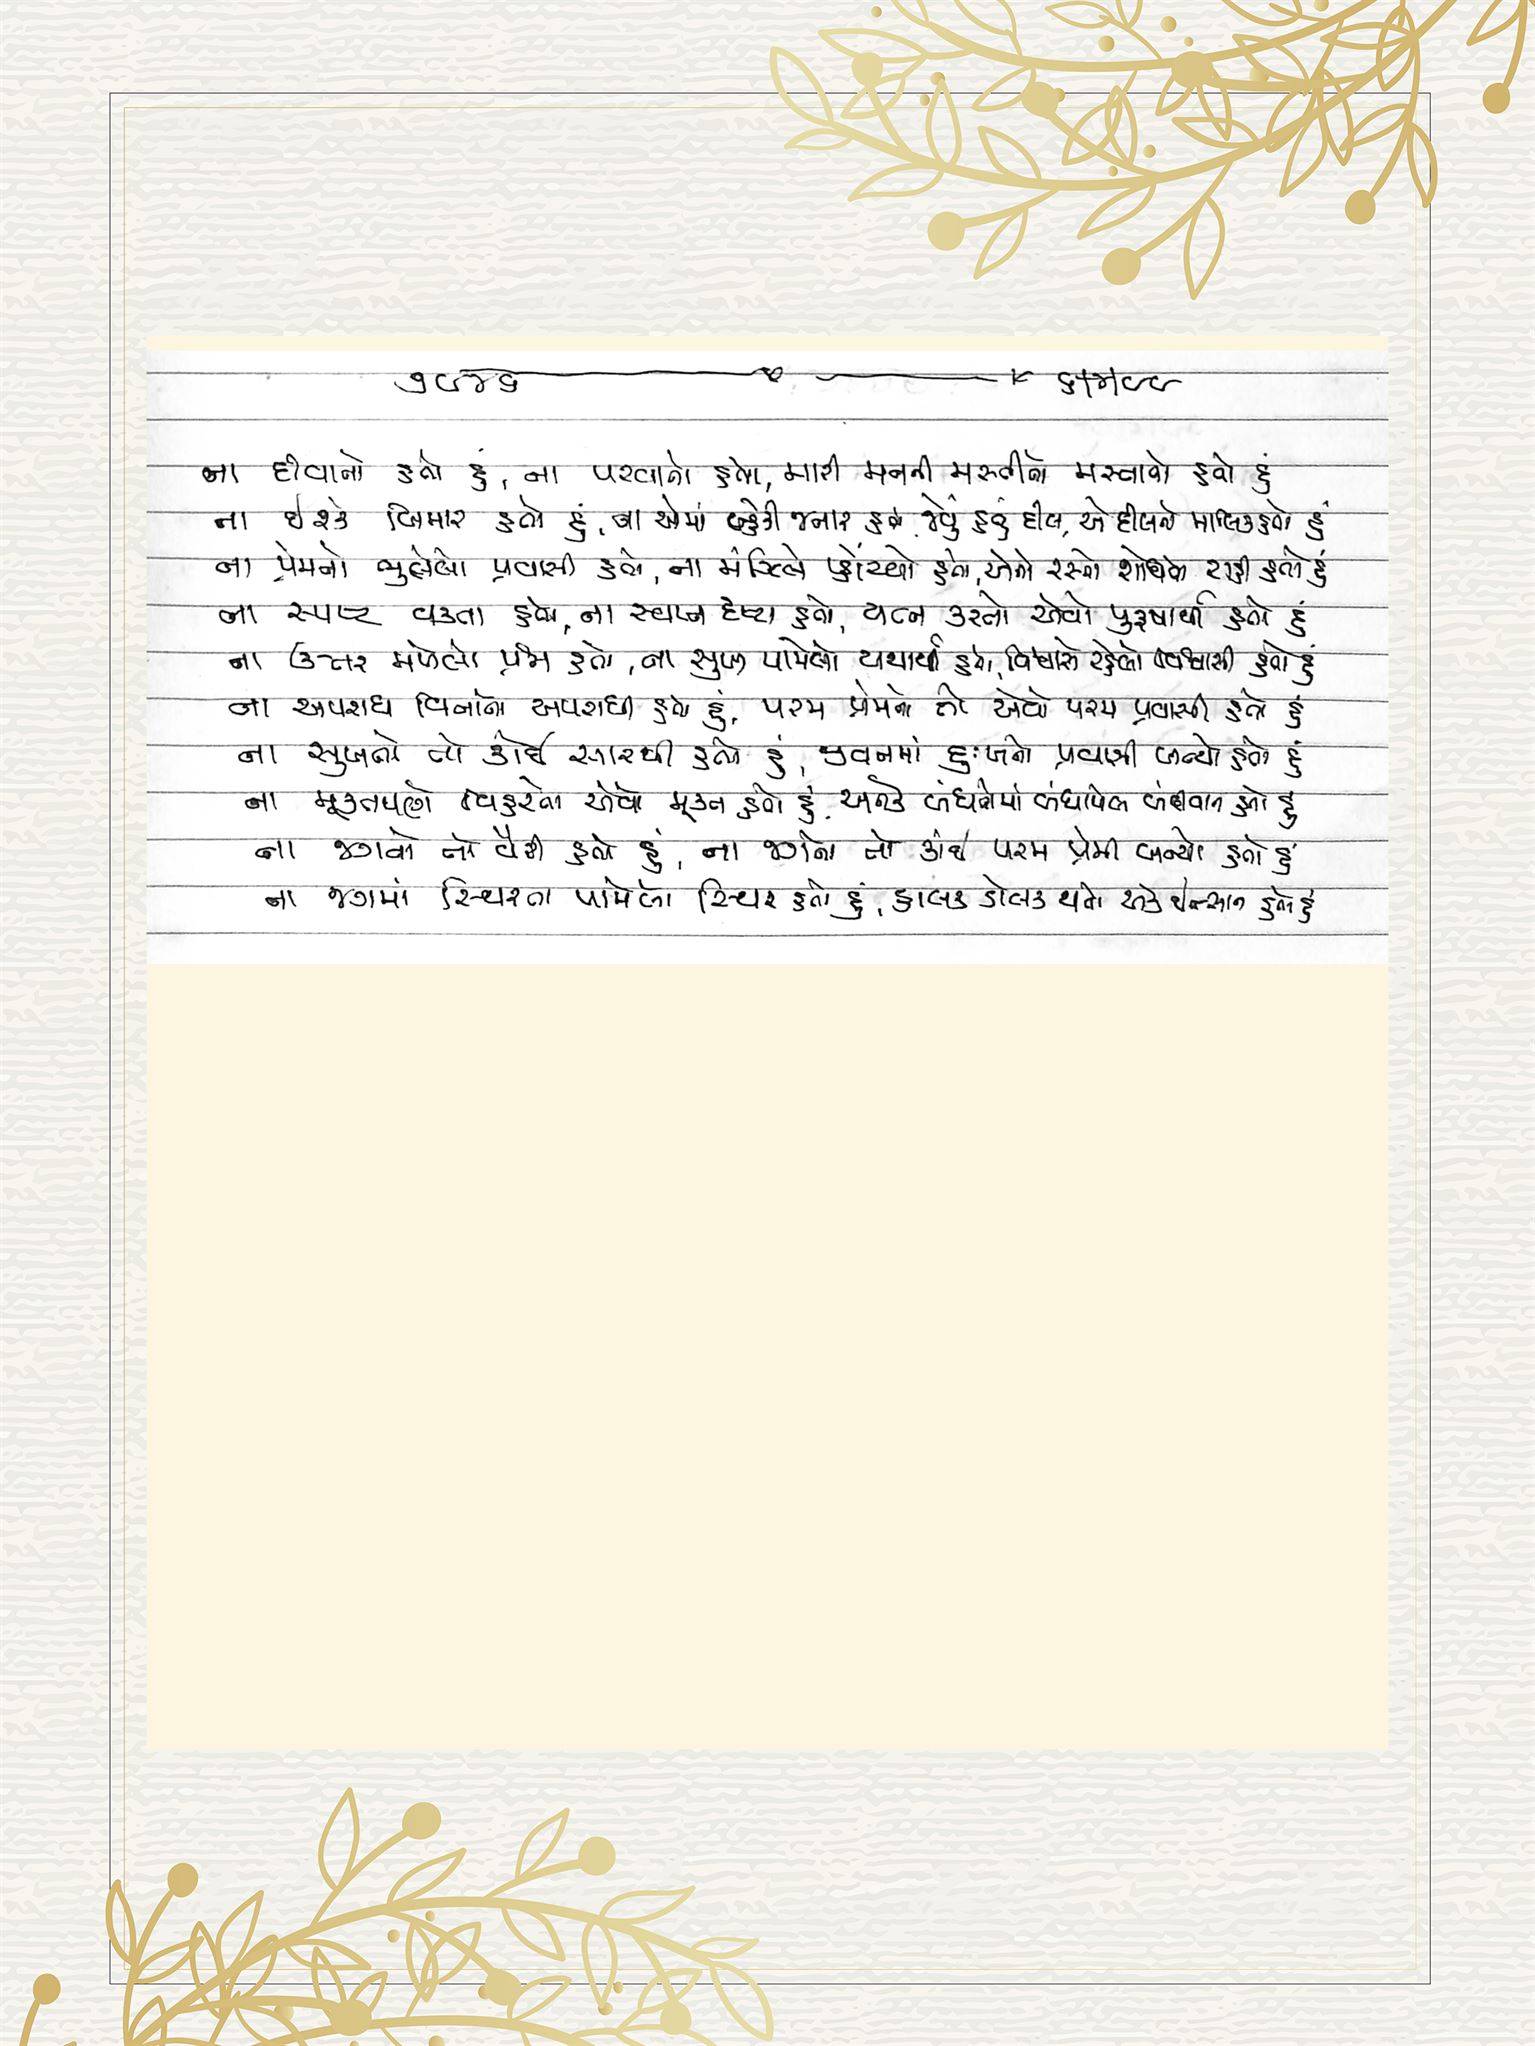 ના દીવાનો હતો હું, ના પરવાનો હતો, મારી મનની મસ્તીનો મસ્તાનો હતો હું
ના ઈશ્કે બિમાર હતો હું, ના એમાં જનાર હતો, જેવું હતું દીલ, એ દીલનો માલિક હતો હું
ના પ્રેમનો ભુલેલો પ્રવાસી હતો, ના મંઝિલે પહોંચ્યો હતો, એનો રસ્તો શોધતો રાહી હતો હું
ના સ્પષ્ટ વકતા હતો, ના સ્વપ્ન દૃષ્ટા હતો, યત્ન કરતો એવો પુરૂષાર્થી હતો હું
ના ઉત્તર મળેલો પ્રશ્ન હતો, ના સુખ પામેલો યથાર્થ હતો, વિશ્વાસે રહેલો વિશ્વાસી હતો હું
ના અપરાધ વિનાનો અપરાધી હતો હું, પરમ પ્રેમનો તો એવો પરમ પ્રવાસી હતો હું
ના સુખનો તો કોઈ સારથી હતો હું, જીવનમાં દુઃખનો પ્રવાસી બન્યો હતો હું
ના મૂકતપણે વિહરતો એવો મૂકત હતો હું, અનેક બંધનોમાં બંધાયેલ બંધવાન હતો હું
ના જગનો તો વૈરી હતો હું, ના જગનો તો કોઈ પરમ પ્રેમી બન્યો હતો હું
ના જગમાં સ્થિરતા પામેલો સ્થિર હતો હું, હાલક ડોલક થતો એક ઈન્સાન હતો હું